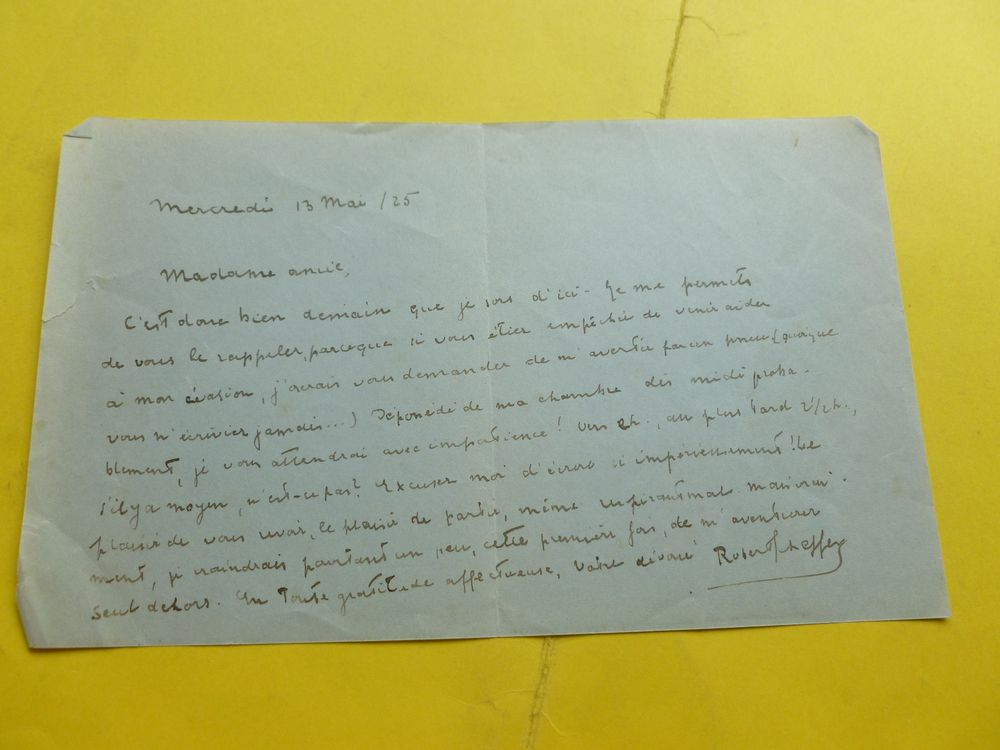 Mercredi 13 Mai /25
Madame amie,
C'est donc bien demain que je sors d'ici - Je me permets
de vous le rappeler, parceque si vous étiez empêchée de venir aider
à mon évasion, j'oserais vous demander de m'avertir par un pneu (quoique
vous n'écriviez jamais...) Dépossédé de ma chambre dès midi proba-
blement, je vous attendrai avec impatience! Vers 2h., au plus tard 2½h.,
s'il y a moyen, n'est-ce pas? Excusez moi d'écrire si impérieusement! Le
plaisir de vous revoir, le plaisir de partir, même
ment, je craindrais pourtant un peu, cette première fois, de m'aventurer
seul dehors. En toute gratitude affectueuse, votre dévoué Robert Scheffer